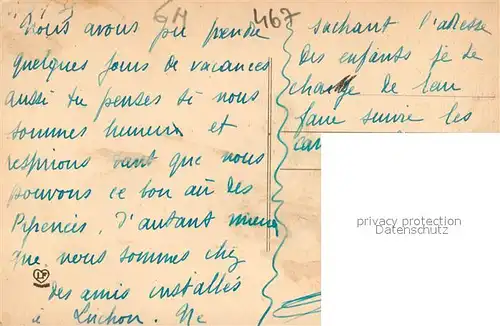 GH
467
Nous avons pu prendre
quelques jours de vacances
aussi tu penses si nous
sommes heureux et
respirons tant que nous
pouvons ce bon air des
Pyrénées, d'autant mieux
que nous sommes chez
des amis installés
à Luchon. Ne
LF
sachant l'adresse
des enfants je te
charge de leur
faire suivre les
privacy protection
Datenschutz